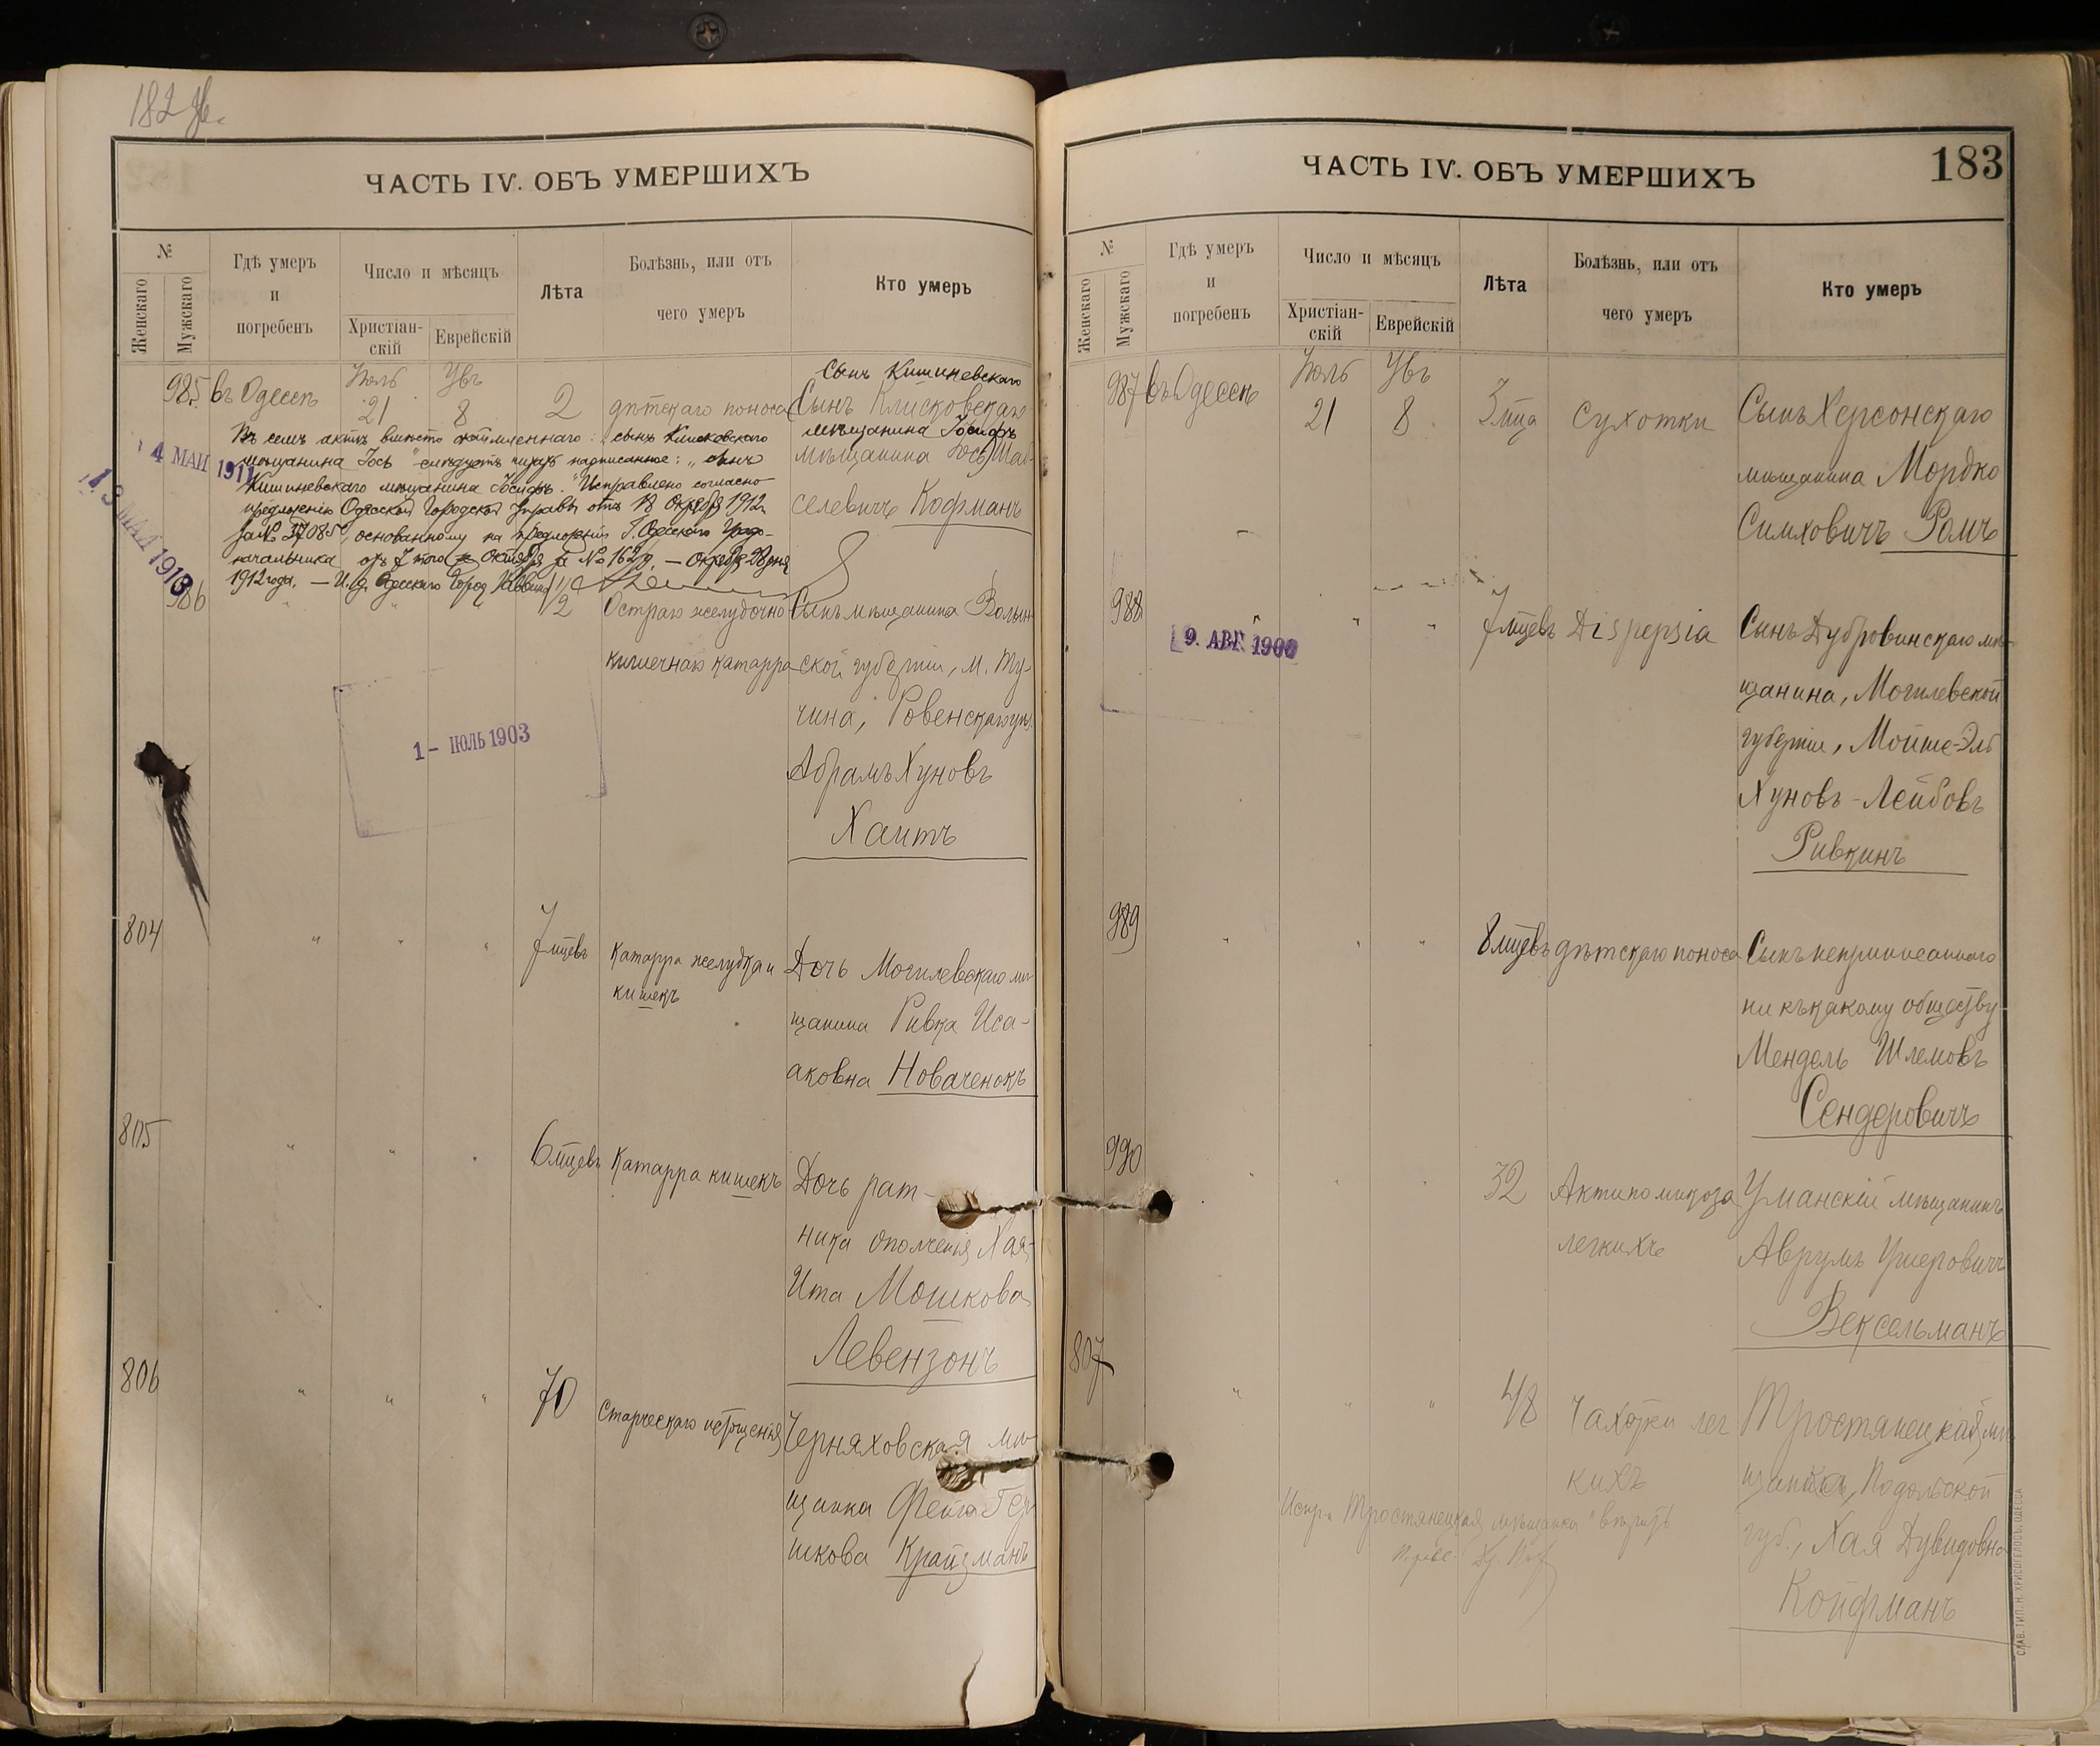 182 об.
ЧАСТЬ IV. ОБЪ УМЕРШИХЪ
№
Женскаго
Мужскаго
Гдѣ умеръ
и
погребенъ
Число и мѣсяцъ
Христіан-
скій
Еврейскій
Лѣта
Болѣзнь, или отъ
чего умеръ
Кто умеръ
985 въ Одессѣ
Іюль
21
Увъ
8
2
дѣтскаго поноса
Сынъ Кишиневскаго
Сынъ Клишковскаго
мѣщанина Іосифъ
мѣщанина Іось Май-
селевичъ Кофманъ
Въ семъ актѣ вмѣсто : "сынъ Клишковскаго
мѣщанина Іось" слѣдуетъ надписанное: "сынъ
Кишиневскаго мѣщанина Іосифъ". Исправлено согласно
предложенію Одесской Городской Управы отъ 18 Октября 1912 г.
за № , основанному на предложеніи Г. Одесскаго Градо-
начальника отъ 7 того Октября за № — Октября 28 дня
1912 года. — И. д. Одесскаго Город. Раввина
4 МАЙ 1911
13 МАЙ 1913
986
"
"
1/2
Остраго желудочно
кишечнаго катарра
Сынъ мѣщанина Волын-
ской губерніи, м. Ту-
чина, Ровенскаго у.
Абрамъ Хуновъ
Хаитъ
1 - ІЮЛЬ 1903
804
"
"
"
7 мцевъ
Катарра желудка и
кишекъ
Дочь Могилевскаго мѣ-
щанина Ривка Иса-
аковна Новаченокъ
805
"
"
"
6 мцевъ
Катарра кишекъ
Дочь рат-
ника ополченія Хая-
Ита Мошкова
Левензонъ
806
"
"
"
70
Старческаго истощенія
Черняховская мѣ-
щанка Фейга Гер-
шкова Крайзманъ
ЧАСТЬ IV. ОБЪ УМЕРШИХЪ
183
№
Женскаго
Мужскаго
Гдѣ умеръ
и
погребенъ
Число и мѣсяцъ
Христіан-
скій
Еврейскій
Лѣта
Болѣзнь, или отъ
чего умеръ
Кто умеръ
987 въ Одессѣ
Іюль
21
Увъ
8
3 мца
Сухотки
Сынъ Херсонскаго
мѣщанина Мордко
Симховичъ Ромъ
988
"
"
"
7 мцевъ
Dispepsia
Сынъ Дубровинскаго мѣ-
щанина, Могилевской
губерніи, Мойше-Эль
Хуновъ-Лейбовъ
Ривкинъ
9. АВГ. 1900
989
"
"
"
8 мцевъ
дѣтскаго поноса
Сынъ неприписаннаго
ни къ какому обществу
Мендель Шлемовъ
Сендеровичъ
990
"
"
"
32
Актиномикоза
легкихъ
Уманскій мѣщанинъ
Аврумъ Ушеровичъ
Вексельманъ
807
"
"
"
48
Чахотки лег
кихъ
Тростянецкая мѣ-
щанка, Подольской
губ., Хая Дувидовна
Койфманъ
Испр. Тростянецкая мѣщанка "вѣрить
СЛАВ. ТИП. Н. ХРИСОГЕЛОСЪ, ОДЕССА